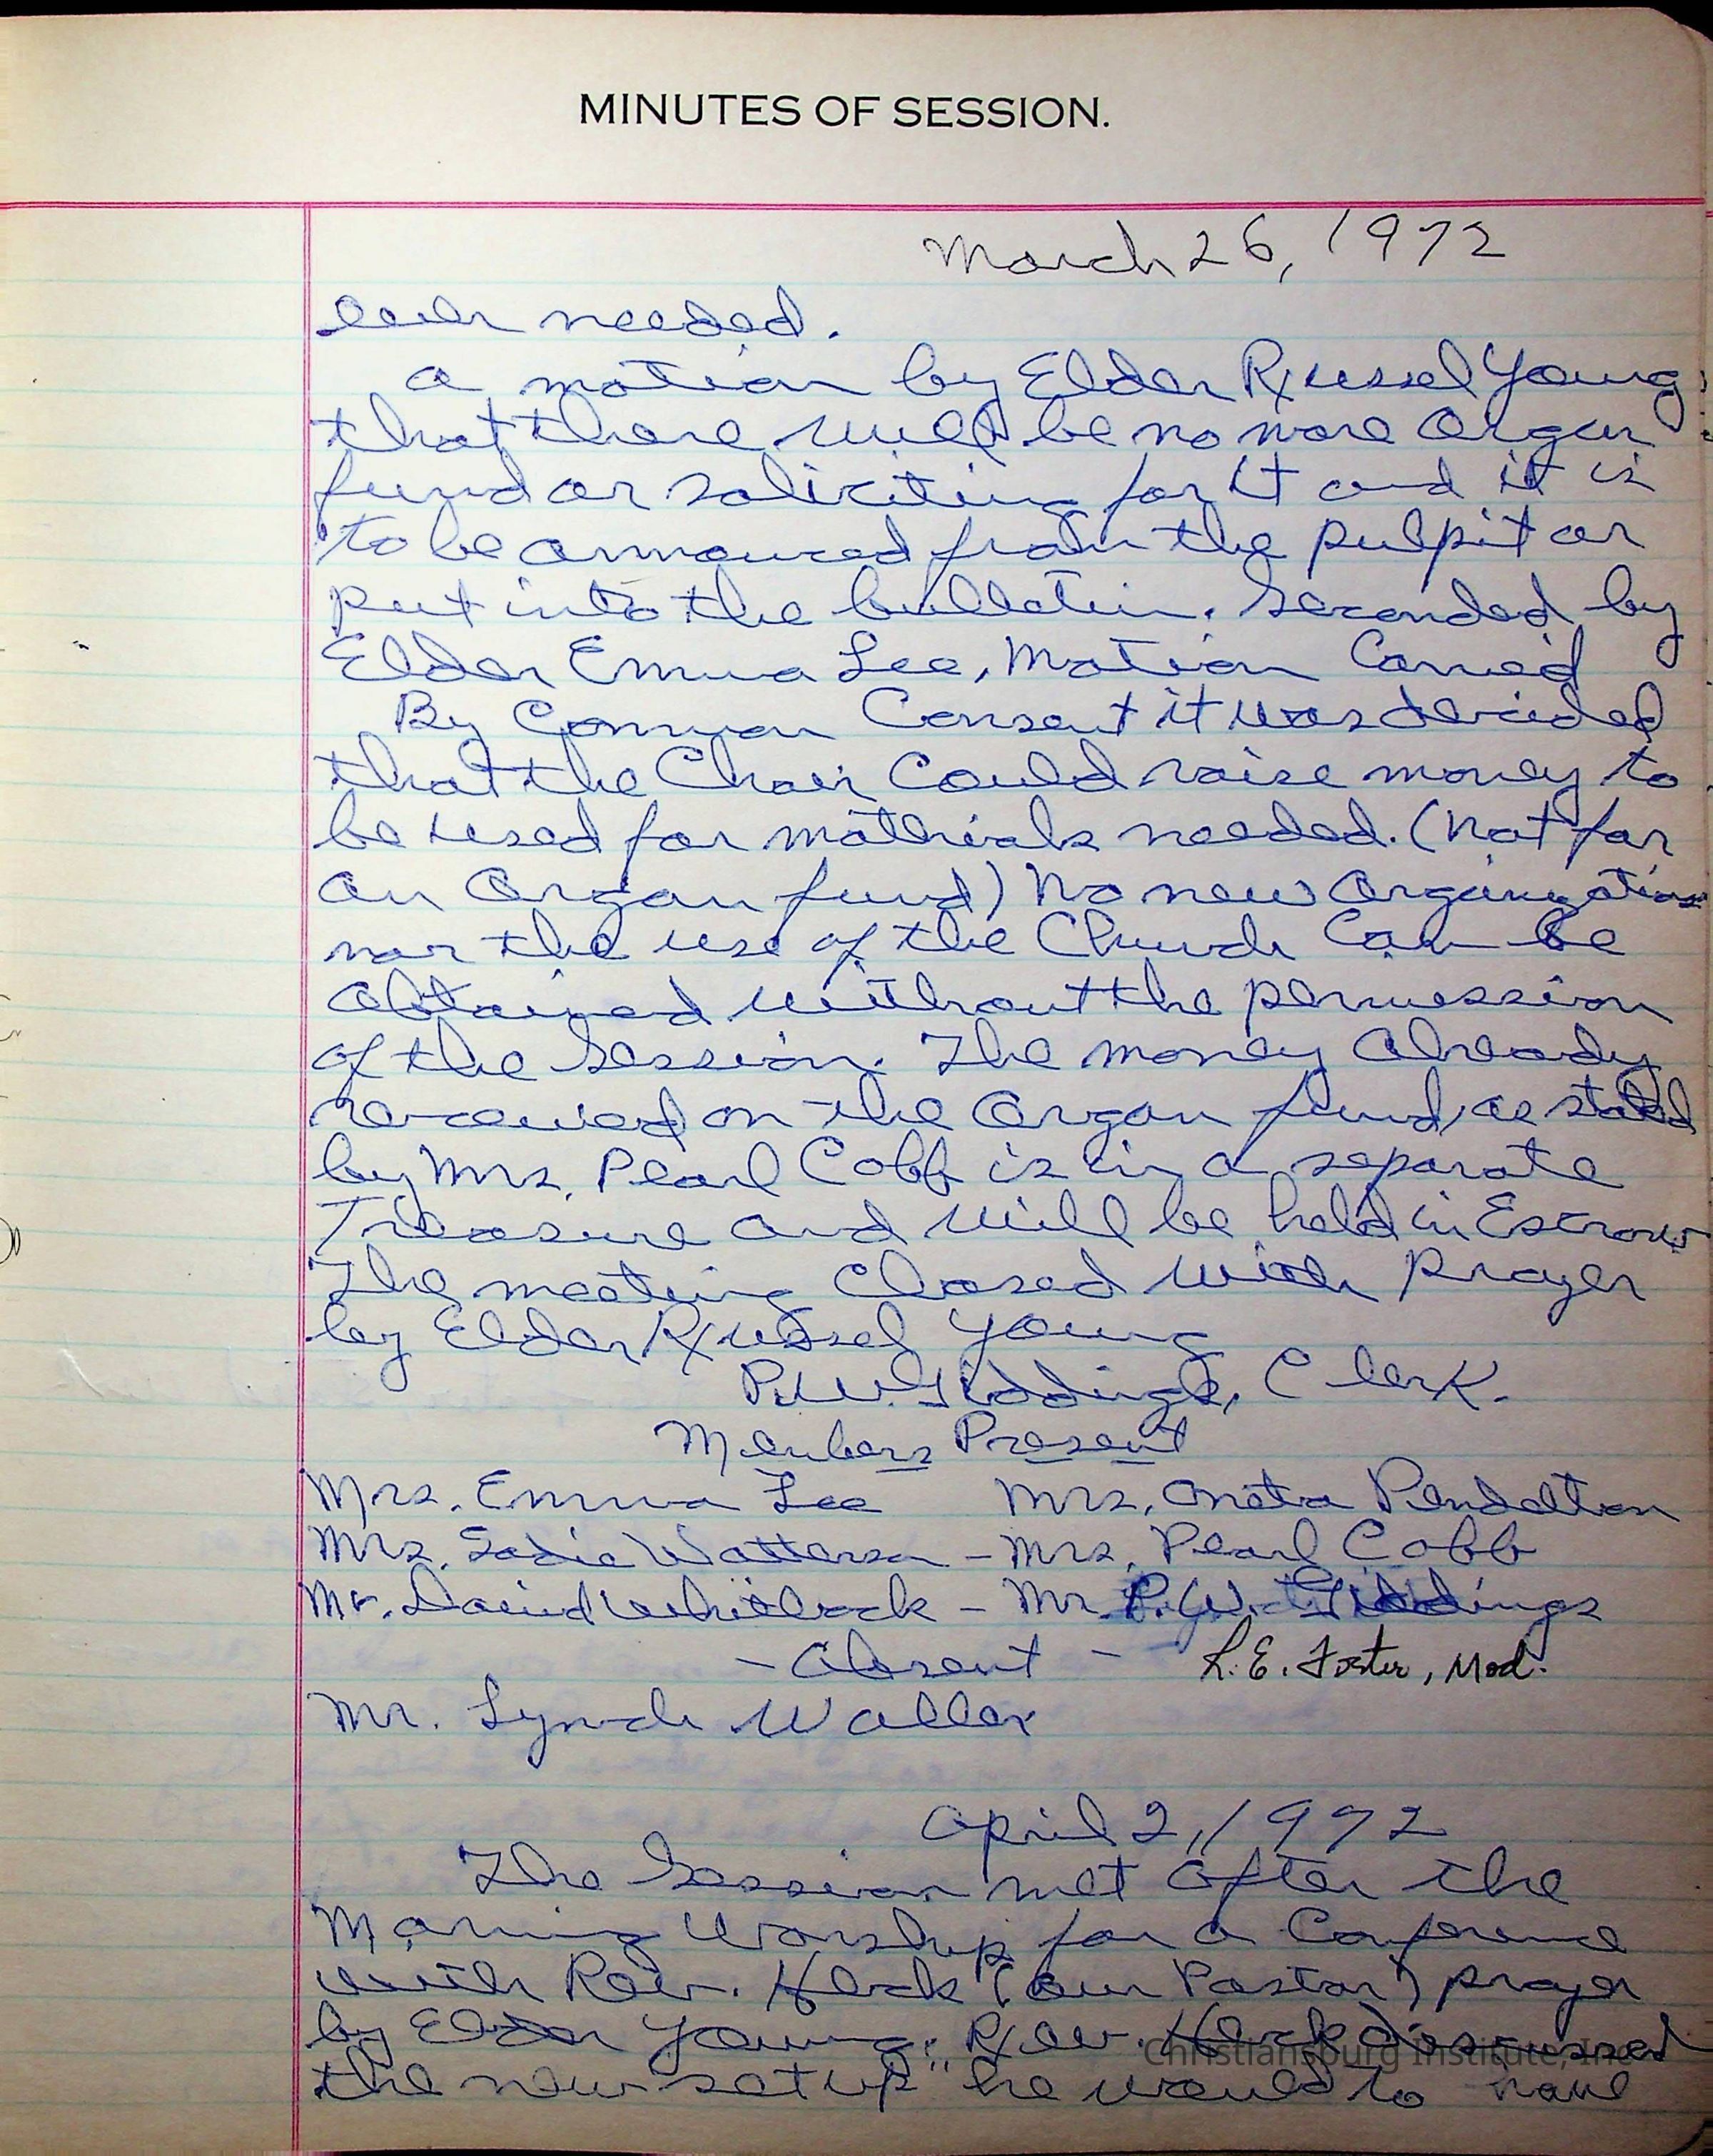 MINUTES OF SESSION.
March 26, 1972
ever needed.
a motion by Elder Russel Young
that there will be no more Organ
fund or soliciting for it and it is
to be announced from the pulpit or
put into the bulletin. Seconded by
Elder Emma Lee, Motion Carried
By Common Consent it was decided
that the Choir Could raise money to
be used for matherials needed. (not for
an Organ fund) No new Organizations
nor the use of the Church Can be
obtained without the permession
of the Session. The money already
received on the Organ fund, as stated
by Mrs. Pearl Cobb is in a separate
Treasure and will be held in Escrow
The meeting Closed with Prayer
by Elder Russel Young
P.W. Giddings, Clerk.
Members Present
Mrs. Emma Lee Mrs. Oneta Pendelton
Mrs. Sadie Watterson - Mrs. Pearl Cobb
Mr. David Whitlock - Mr. P.W. Giddings
- Absent - R. E. Foster, Mod.
Mr. Lynch Waller
April 2, 1972
The Session met after the
Morning Worship for a Conference
with Rev. (our Pastor) prayer
by Elder Young. Rev. discussed
the new "set up" he would to have
Christiansburg Institute, Inc